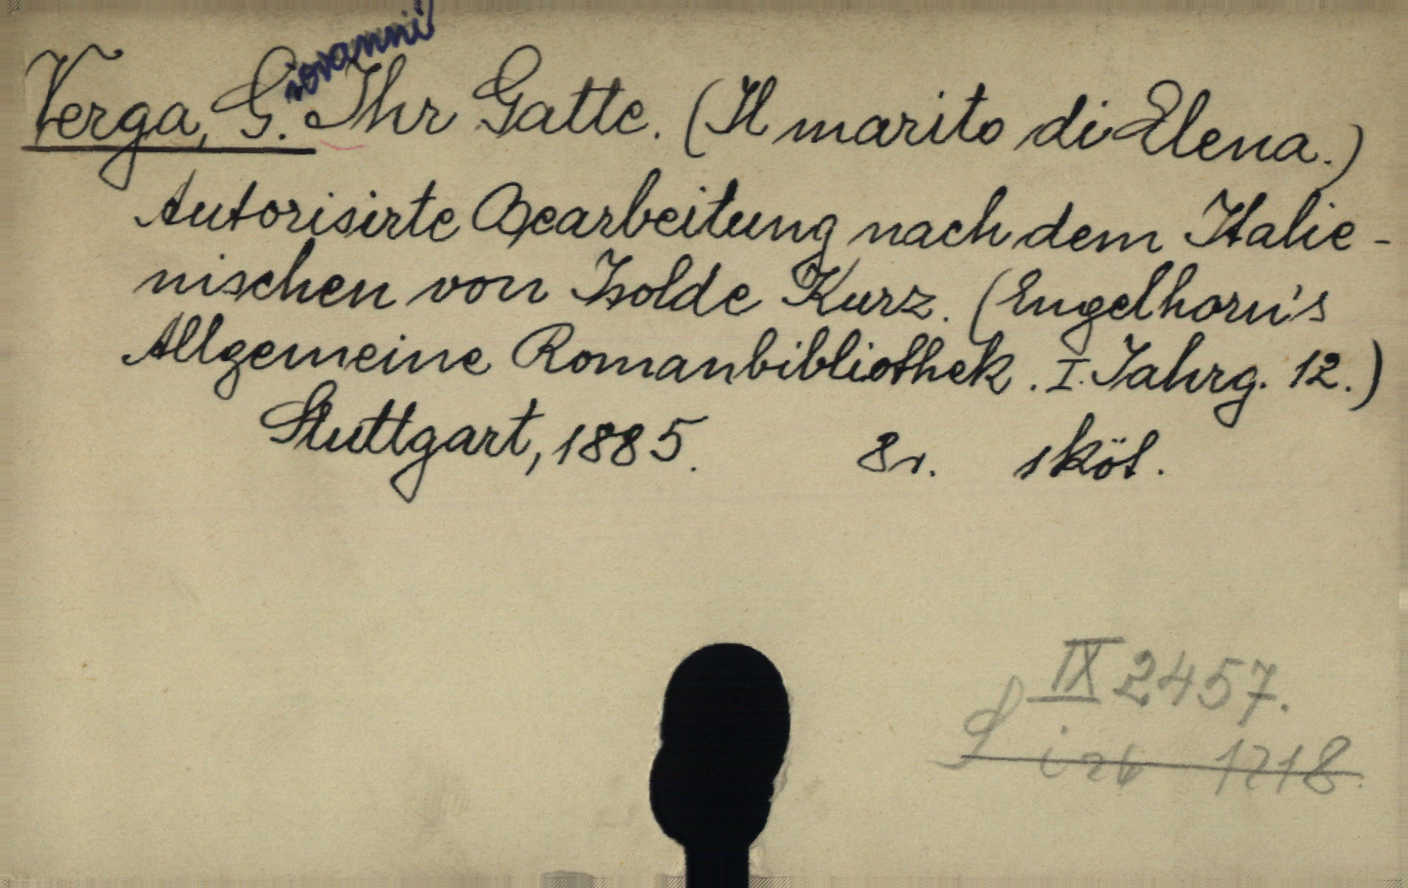 Verga, Giovanni. Ihr Gatte. (Il marito di Elena.)
Autorisirte Bearbeitung nach dem Italie-
nischen von Isolde Kurz. (Engelhorn's
Allgemeine Romanbibliothek. I. Jahrg. 12.)
Stuttgart, 1885. 8r. sköt.
IX 2457.
1218